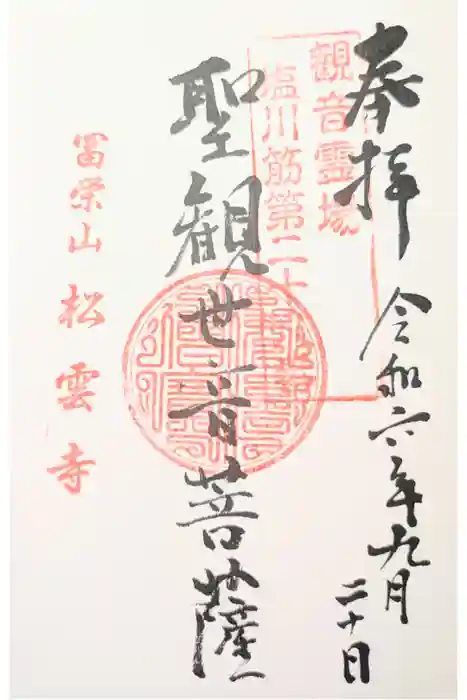 奉拝
令和六年九月
二十日
観音霊場
塩川筋第二十
聖観世音菩薩
冨栄山
松雲寺